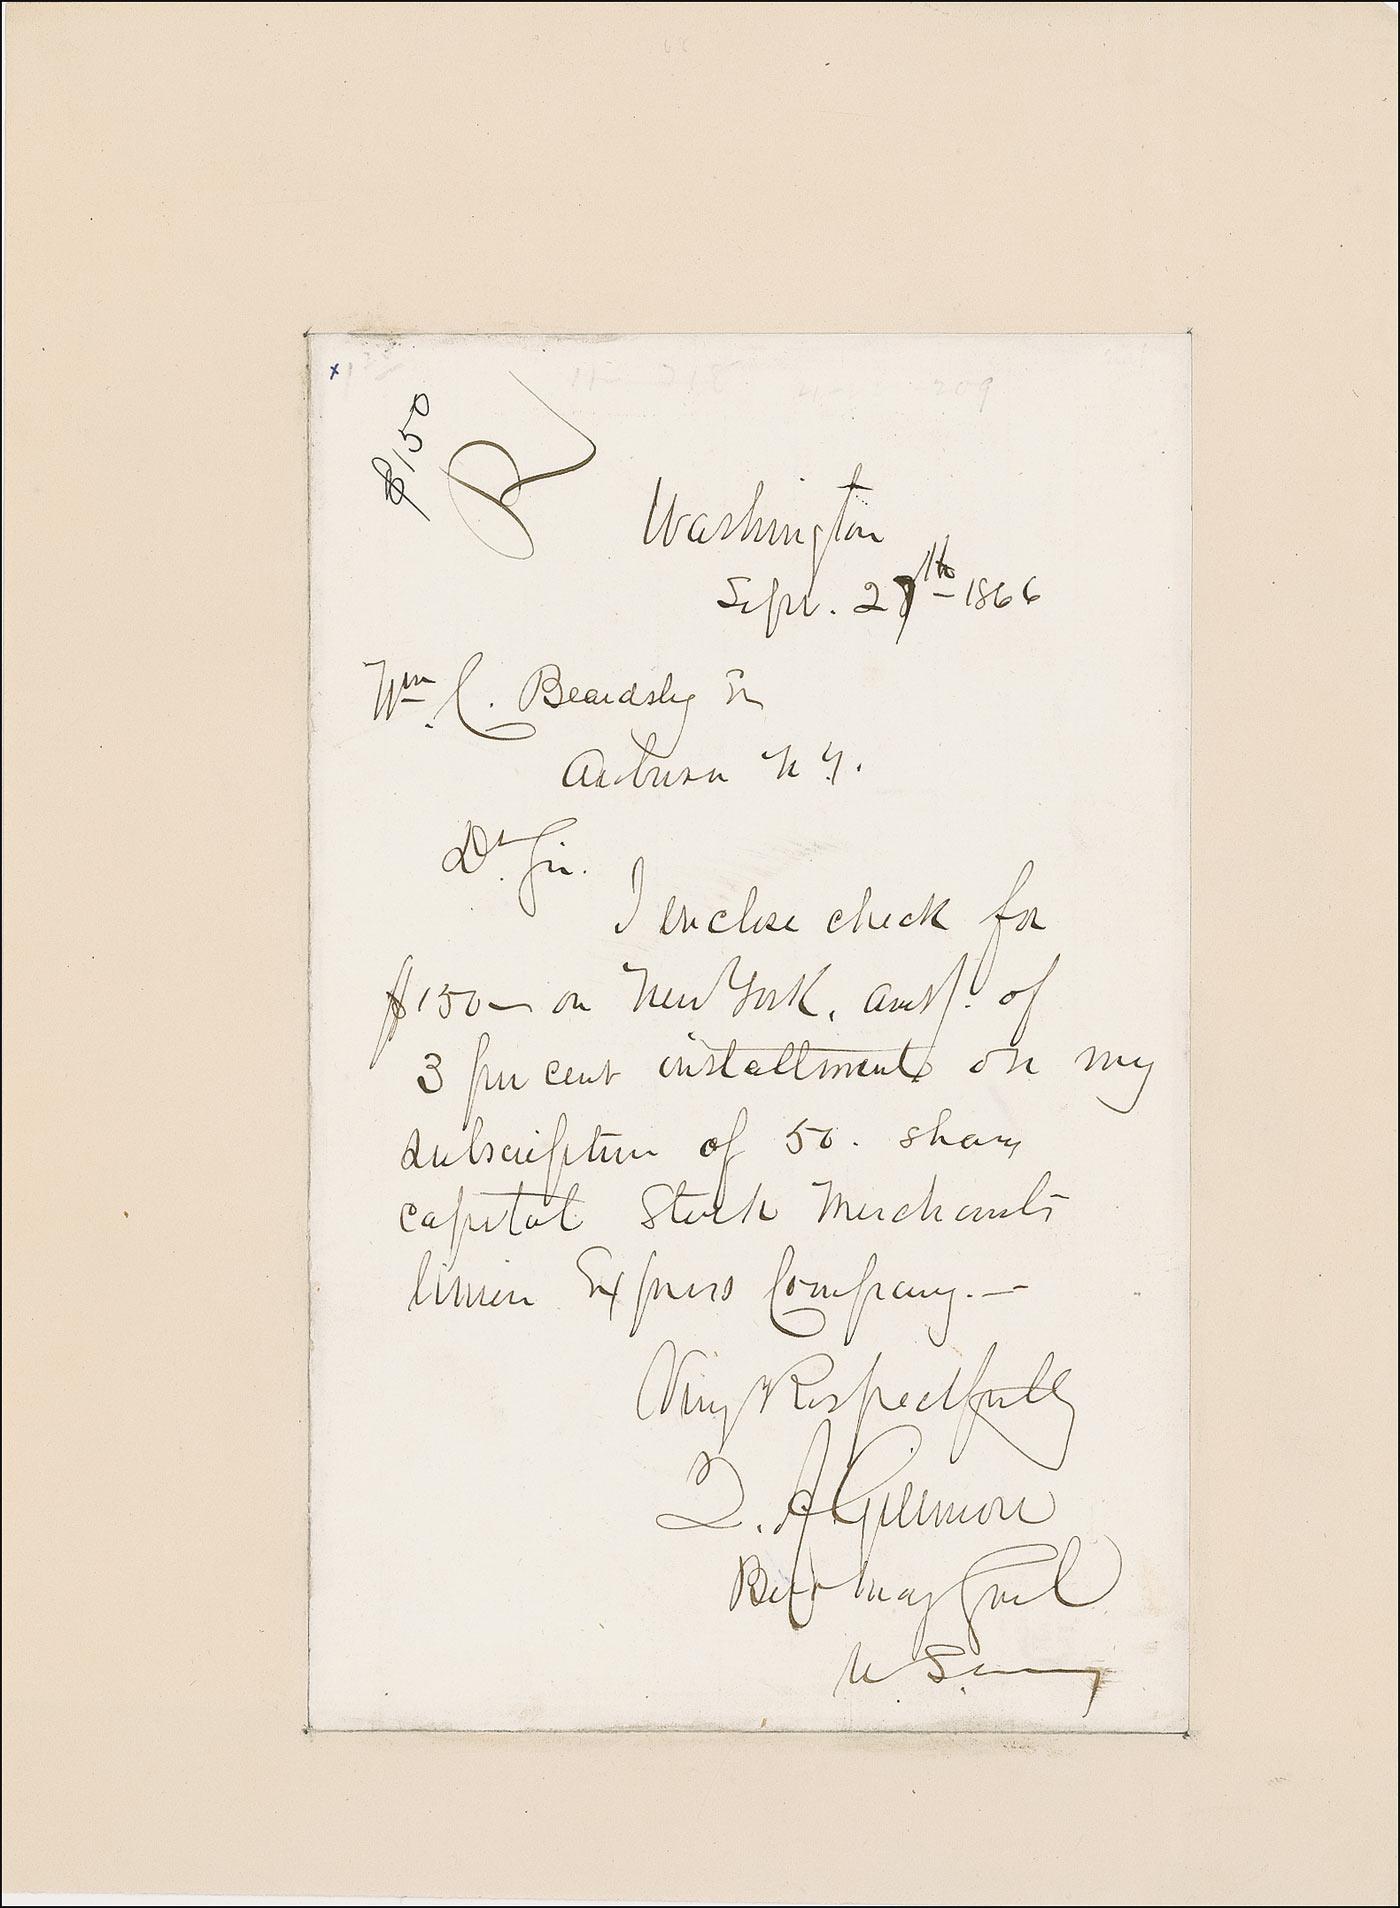 $150
R
Washington
Sept. 27th 1866
Wm. C. Beardsley Jr
Auburn N Y.
Dr. Sir.
I enclose check for
$150— on New York, amt. of
3 per cent installment on my
subscription of 50. shares
capital Stock Merchants
Union Express Company.—
Very Respectfully
Q. A. Gillmore
Bvt Maj Genl
U. S. Army